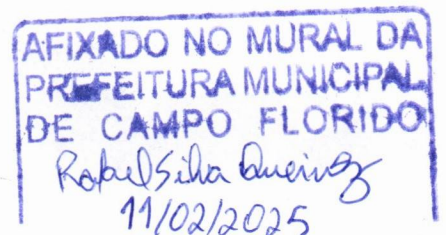 AFIXADO NO MURAL DA
PREFEITURA MUNICIPAL
DE CAMPO FLORIDO
Rafael Silva Queiroz
11/02/2025